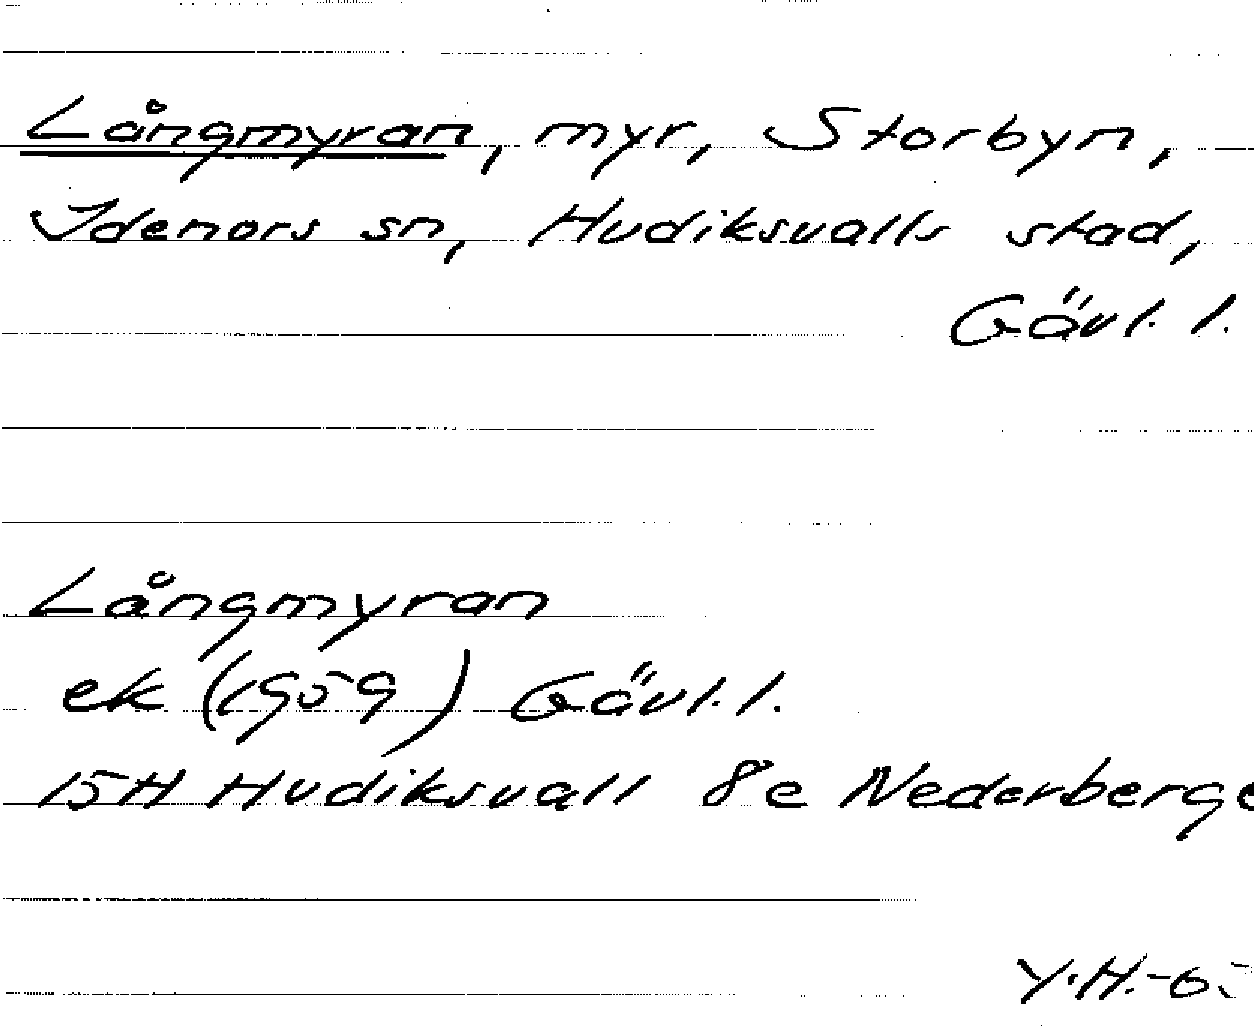 Långmyran, myr, Storbyn,
Idenors sn, Hudiksvalls stad,
Gävl. l.
Långmyran
ek (1959) Gävl. l.
15H Hudiksvall 8e Nederberge
Y.H.-6